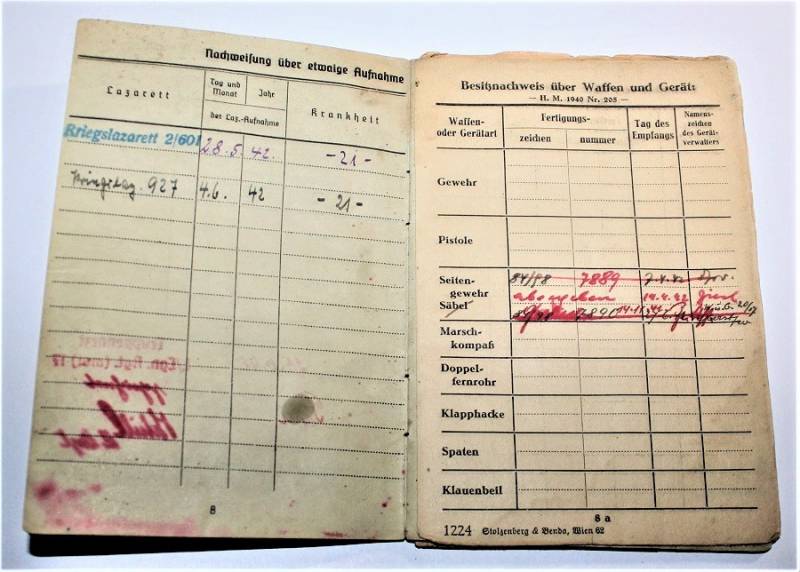 Nachweisung über etwaige Aufnahme
Lazarett
Tag und Monat
Jahr
der Laz.-Aufnahme
Krankheit
Kriegslazarett 2/601
28.5. 42.
-21-
927
4.6. 42
-21-
8
Besitznachweis über Waffen und Gerät:
— H. M. 1940 Nr. 205 —
Waffen- oder Gerätart
Fertigungs-
zeichen
nummer
Tag des Empfangs
Namens- zeichen des Gerät- verwalters
Gewehr
Pistole
Seiten- gewehr
84/98
7889
7.4.42
abgegeben
19.4.42
Säbel
Marsch- kompaß
Doppel- fernrohr
Klapphacke
Spaten
Klauenbeil
8 a
1224 Stolzenberg & Benda, Wien 62